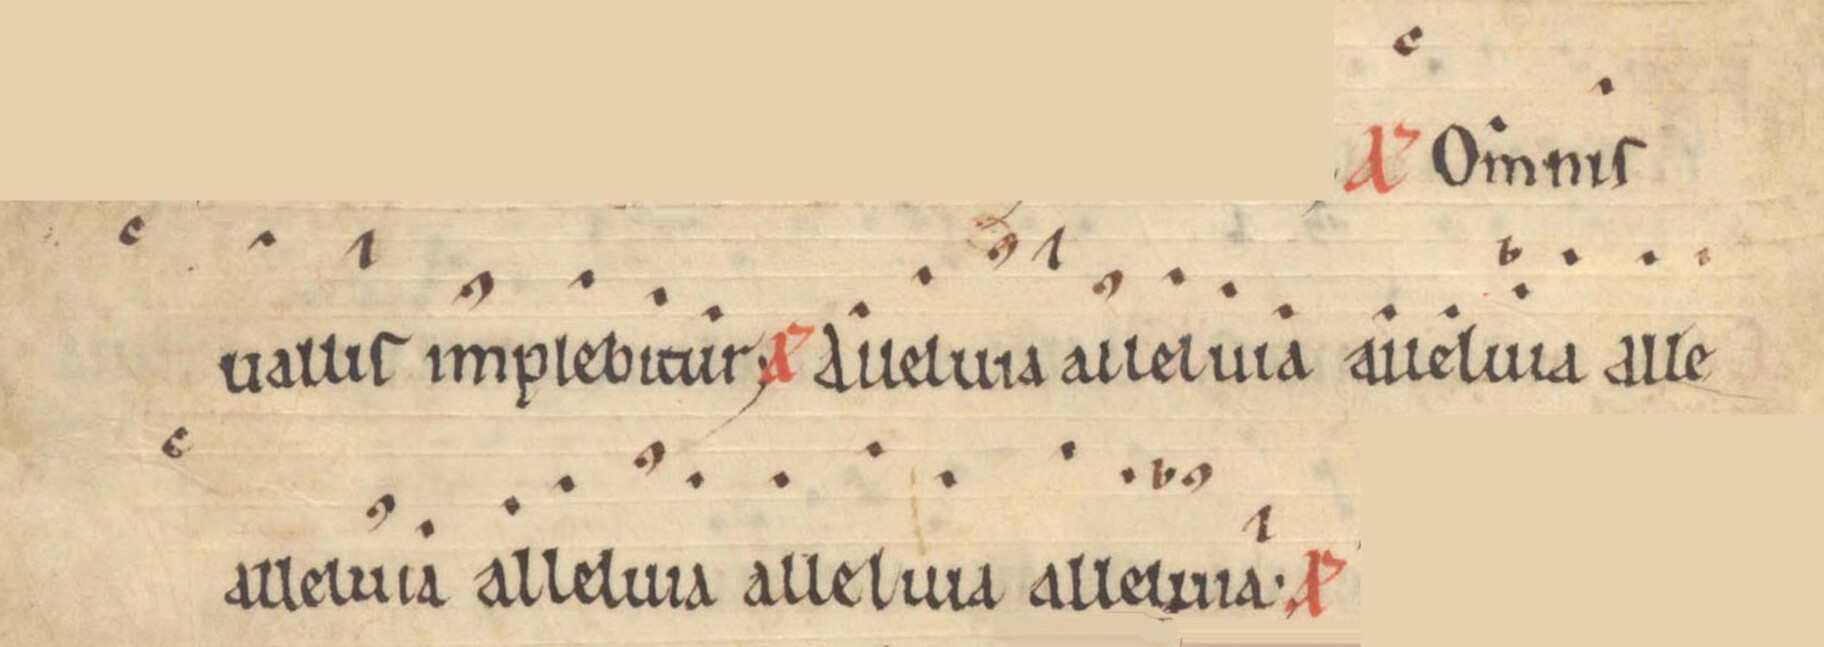 Omnis
uallis implebitur; Alleluia alleluia alleluia alle
alleluia alleluia alleluia alleluia.